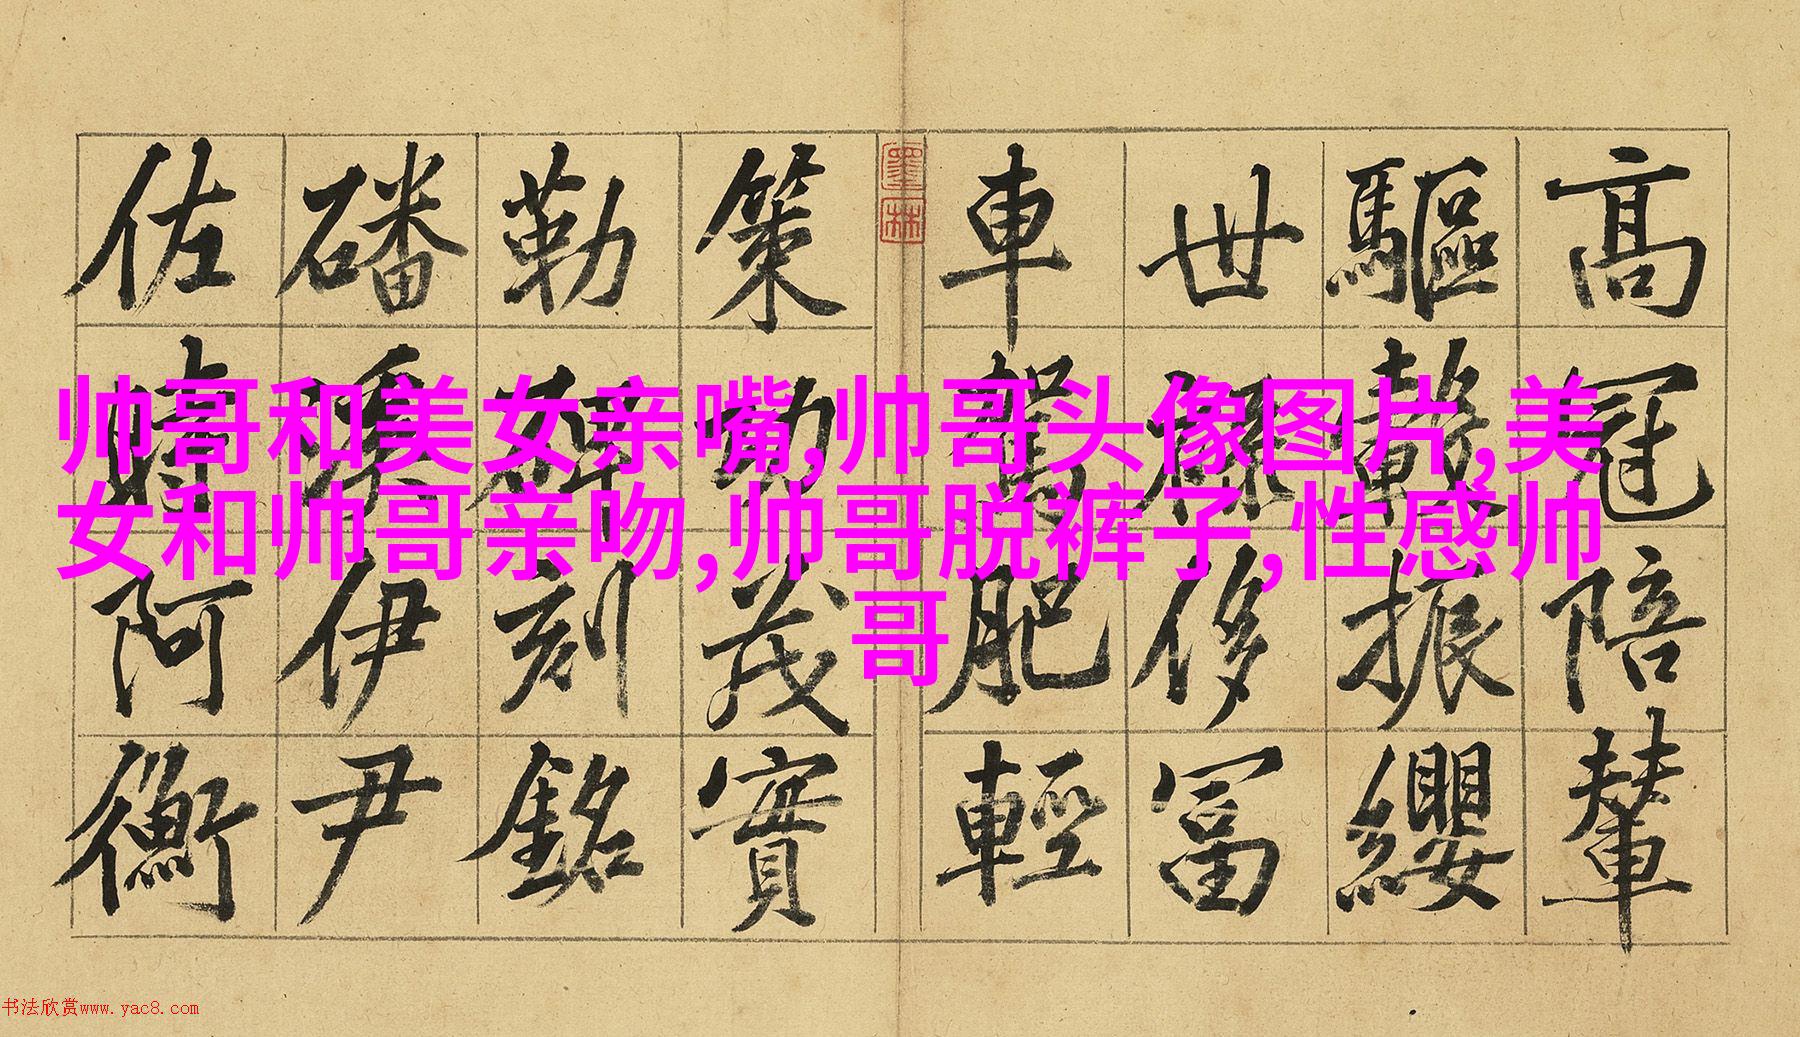 高冠陪輦
驅轂振纓
世祿侈冨
車駕肥輕
墨林
策功茂實
勒碑刻銘
磻溪伊尹
佐時阿衡
帅哥和美女亲嘴,帅哥头像图片,美
女和帅哥亲吻,帅哥脱裤子,性感帅
哥
书法欣赏www.yac8.com